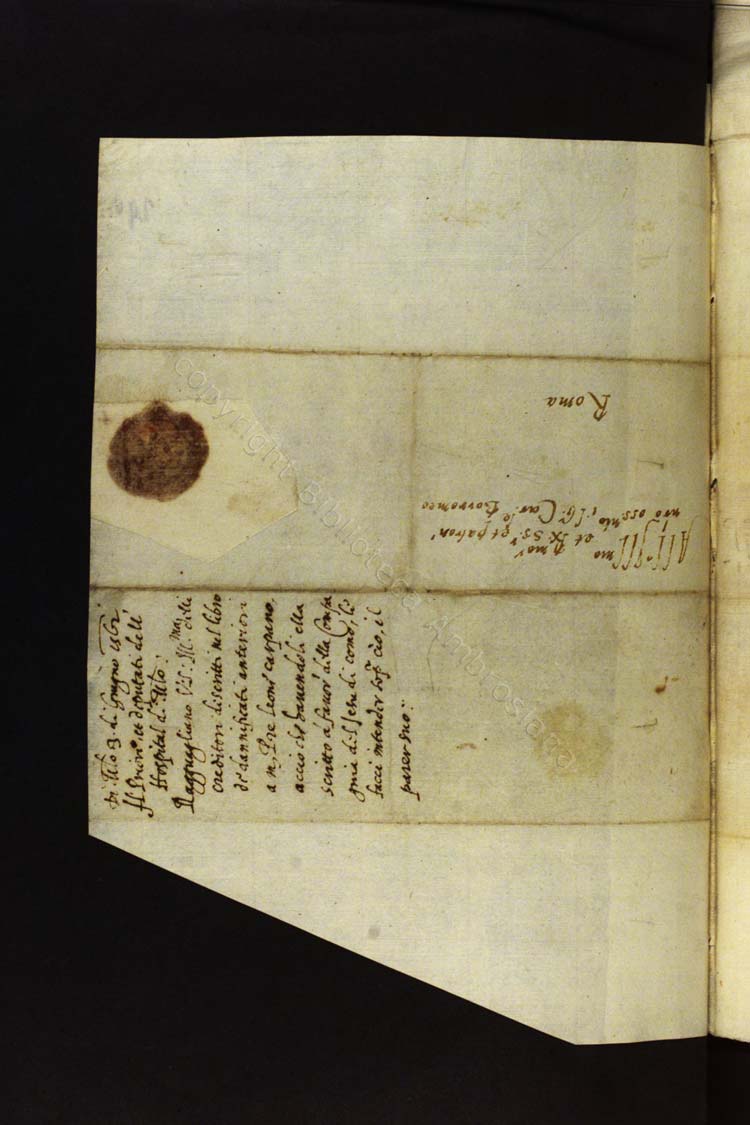 All' Ill.mo et R.mo
S.r et patron'
nro oss.mo il S.r Car.le Borromeo
Roma
Di Mlo 3 di Giugno 1562
Il Prior' et deputati dell'
Hospital di Mlo:
Ragguagliano V.S. Ill.ma delli
creditori discritti nel libro
de dannificati anteriori
a m. Pre Leon' carpano,
accio che havendoli ella
scritto a favor' della Compa
gnia di Jesu di como, li
facci intender' sop.a cio, il
parer suo:
copyright Biblioteca Ambrosiana